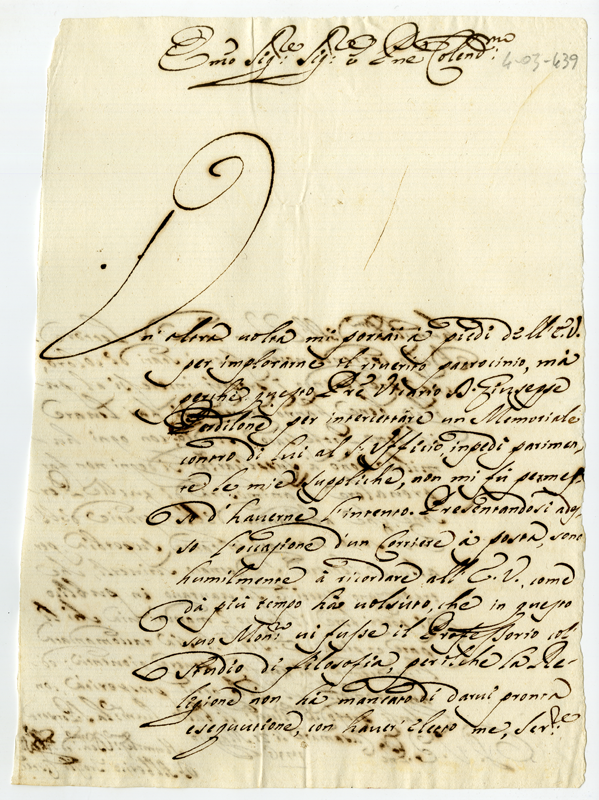 Emo Sigre Sigr e Pne Colendmo
4-03-439
Un altra volta mi portai a' piedi dell' E.V.
per implorarne il riverito patrocinio, mà
perche questo Pre Vicario D. Giuseppe
Cordilone per intercettare un Memoriale
contro di lui al S. Uffitio, impedi parimen
te le mie suppliche, non mi fù permes
so d' haverne l' intento. Presentandosi ades
so l' occazione d' un Corriere à posta, sono
humilmente à ricordare all' E.V., come
dà più tempo hà volsuto, che in questo
suo Monro vi fusse il Professorio col
studio di filosofia, perilche la Re-
ligione non hà mancato di darvi pronta
esequutione, con haver' eletto me, Serre